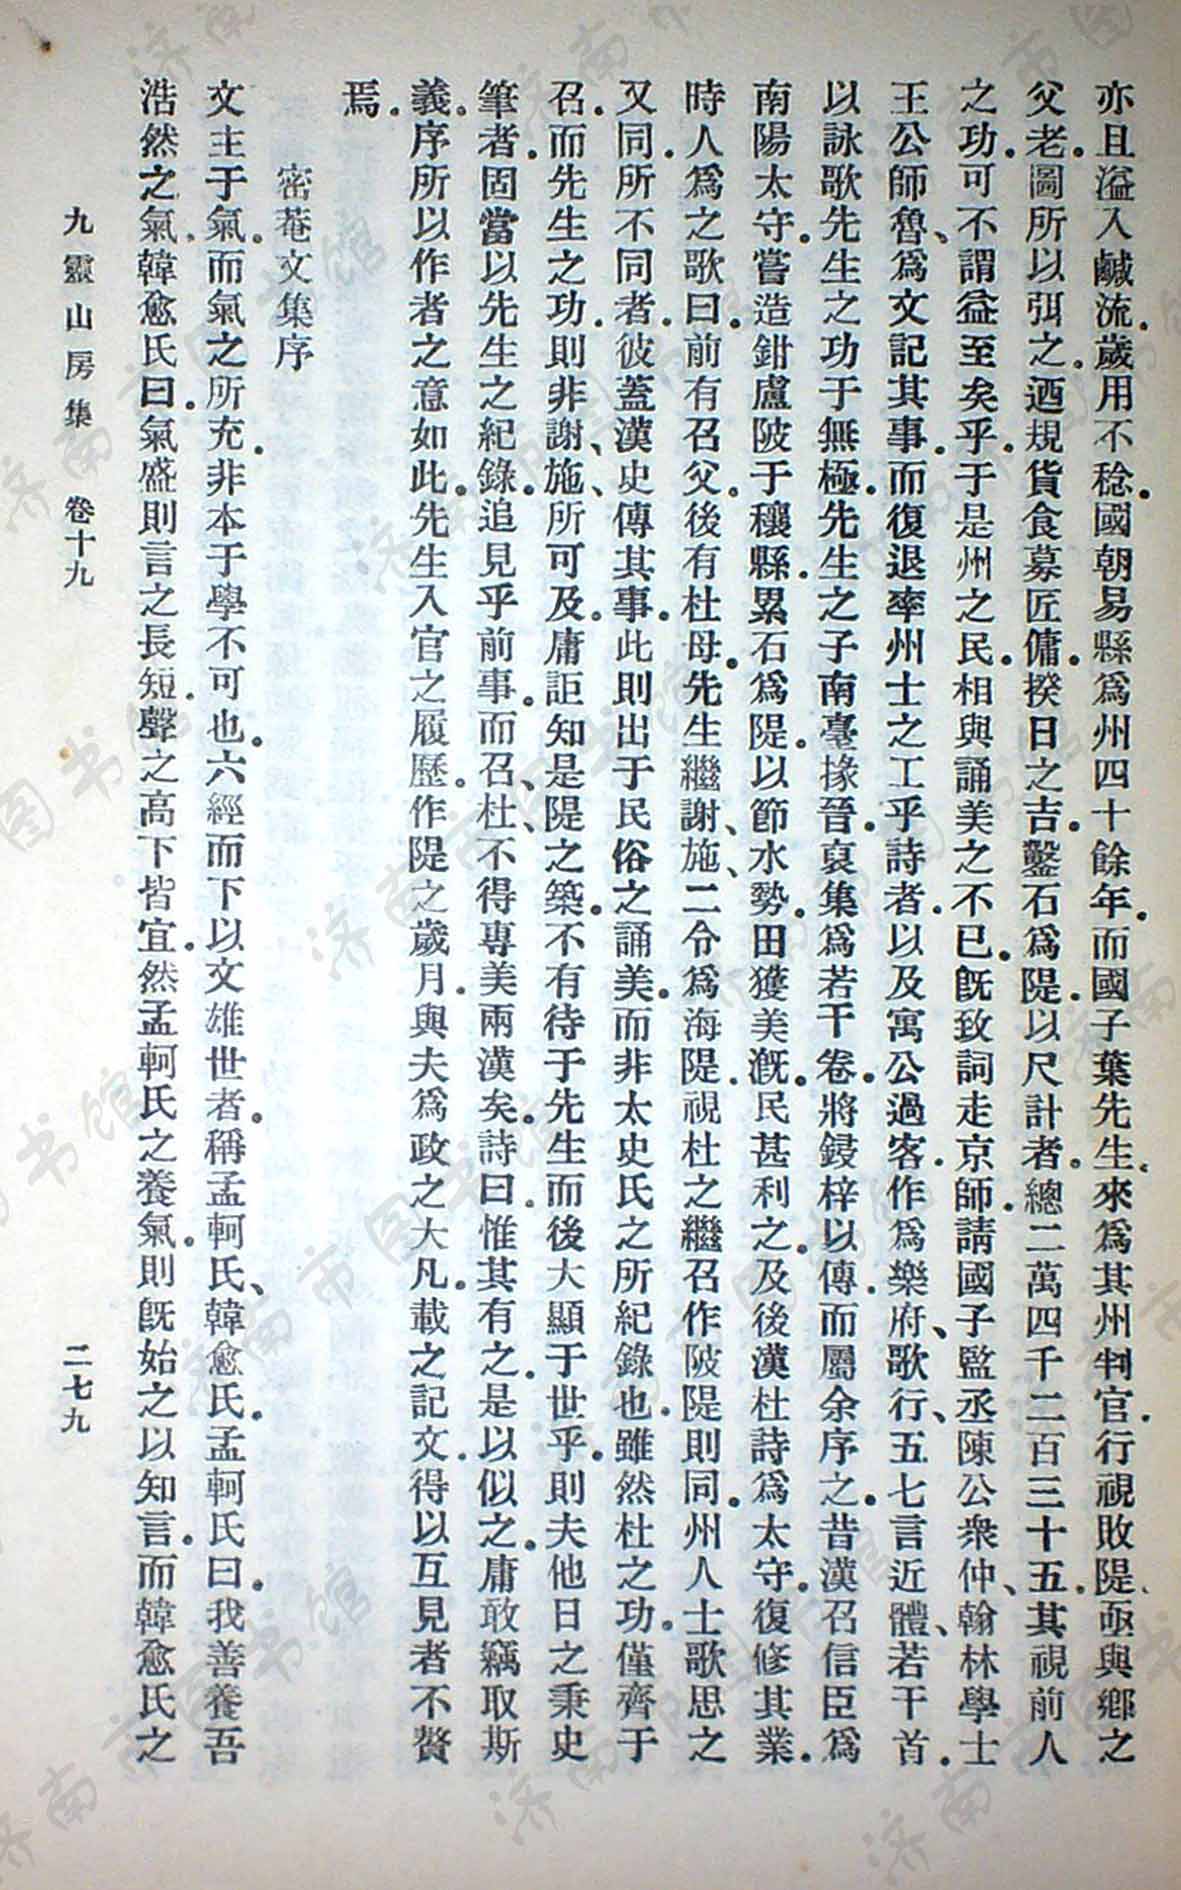 亦且溢入鹹流。歲用不稔。國朝易縣爲州四十餘年。而國子葉先生、來爲其州判官。行視敗隄、亟與鄉之
父老。圖所以弭之。迺規貨食募匠傭。揆日之吉。鑿石爲隄。以尺計者。總二萬四千二百三十五。其視前人
之功。可不謂益至矣乎。于是州之民。相與誦美之不已。旣致詞走京師。請國子監丞陳公衆仲、翰林學士
王公師魯、爲文記其事。而復退率州士之工乎詩者。以及寓公過客。作爲樂府、歌行、五七言近體、若干首。
以詠歌先生之功于無極。先生之子南臺掾晉。裒集爲若干卷。將鋟梓以傳。而屬余序之。昔漢召信臣爲
南陽太守。嘗造鉗盧陂于穰縣。累石爲隄。以節水勢。田獲美漑。民甚利之。及後漢杜詩爲太守。復修其業。
時人爲之歌曰。前有召父。後有杜母。先生繼謝、施、二令爲海隄。視杜之繼召作陂隄則同。州人士歌思之
又同。所不同者。彼蓋漢史傳其事。此則出于民俗之誦美。而非太史氏之所紀錄也。雖然杜之功。僅齊于
召。而先生之功。則非謝、施、所可及。庸詎知是隄之築。不有待于先生而後大顯于世乎。則夫他日之秉史
筆者。固當以先生之紀錄。追見乎前事。而召、杜、不得專美兩漢矣。詩曰。惟其有之。是以似之。庸敢竊取斯
義。序所以作者之意如此。先生入官之履歷。作隄之歲月。與夫爲政之大凡。載之記文。得以互見者不贅
焉。
密菴文集序
文主于氣。而氣之所充。非本于學不可也。六經而下。以文雄世者。稱孟軻氏、韓愈氏。孟軻氏曰。我善養吾
浩然之氣。韓愈氏曰。氣盛則言之長短。聲之高下皆宜。然孟軻氏之養氣。則旣始之以知言。而韓愈氏之
九靈山房集 卷十九 二七九
济南市图书馆